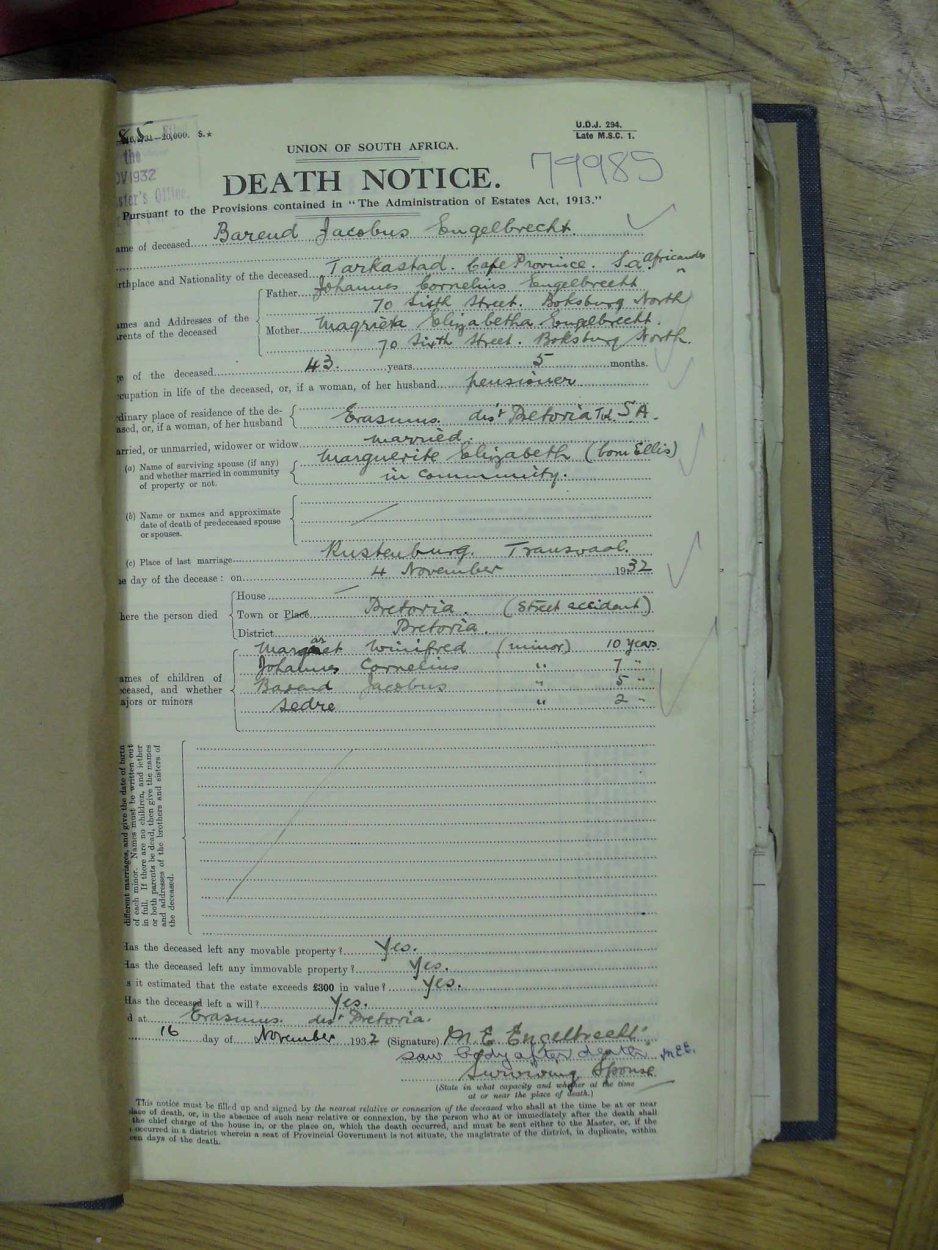 U.D.J. 294.
Late M.S.C. 1.
—20,000. S.*
UNION OF SOUTH AFRICA.
79985
the
OV 1932
ster's Office.
DEATH NOTICE.
Pursuant to the Provisions contained in "The Administration of Estates Act, 1913."
ame of deceased Barend Jacobus Engelbrecht.
rthplace and Nationality of the deceased Tarkastad. Cape Province. S.a. Africander
ames and Addresses of the
arents of the deceased
Father Johannes Cornelius Engelbrecht "
70 Sixth Street. Boksburg North
Mother Magrieta Elizabetha Engelbrecht.
70 Sixth Street. Boksburg North.
e of the deceased 43. years 5 months.
cupation in life of the deceased, or, if a woman, of her husband pensioner
dinary place of residence of the de-
ased, or, if a woman, of her husband
Erasmus. dist Pretoria Tvl S A.
arried, or unmarried, widower or widow married.
(a) Name of surviving spouse (if any)
and whether married in community
of property or not.
Marguerite Elizabeth (born Ellis)
in community.
(b) Name or names and approximate
date of death of predeceased spouse
or spouses.
(c) Place of last marriage Rustenburg. Transvaal.
he day of the decease: on 4 November 1932
here the person died
House
Town or Place Pretoria. (Street accident)
District Pretoria.
ames of children of
eceased, and whether
ajors or minors
Margaret Winifred (minor) 10 years
Johannes Cornelius " 7 "
Barend Jacobus " 5 "
Sedre " 2 "
different marriages, and give the date of birth
of each minor. Names must be written out
in full. If there are no children, and either
or both parents be dead, then give the names
and addresses of the brothers and sisters of
the deceased.
Has the deceased left any movable property? Yes.
Has the deceased left any immovable property? Yes.
s it estimated that the estate exceeds £300 in value? Yes.
Has the deceased left a will? Yes.
d at Erasmus. dist Pretoria.
16 day of November 1932 (Signature) M. E. Engelbrecht.
saw body after death. M.E.E.
Surviving Spouse
(State in what capacity and whether at the time
at or near the place of death.)
This notice must be filled up and signed by the nearest relative or connexion of the deceased who shall at the time be at or near
lace of death, or, in the absence of such near relative or connexion, by the person who at or immediately after the death shall
the chief charge of the house in, or the place on, which the death occurred, and must be sent either to the Master, or, if the
occurred in a district wherein a seat of Provincial Government is not situate, the magistrate of the district, in duplicate, within
een days of the death.